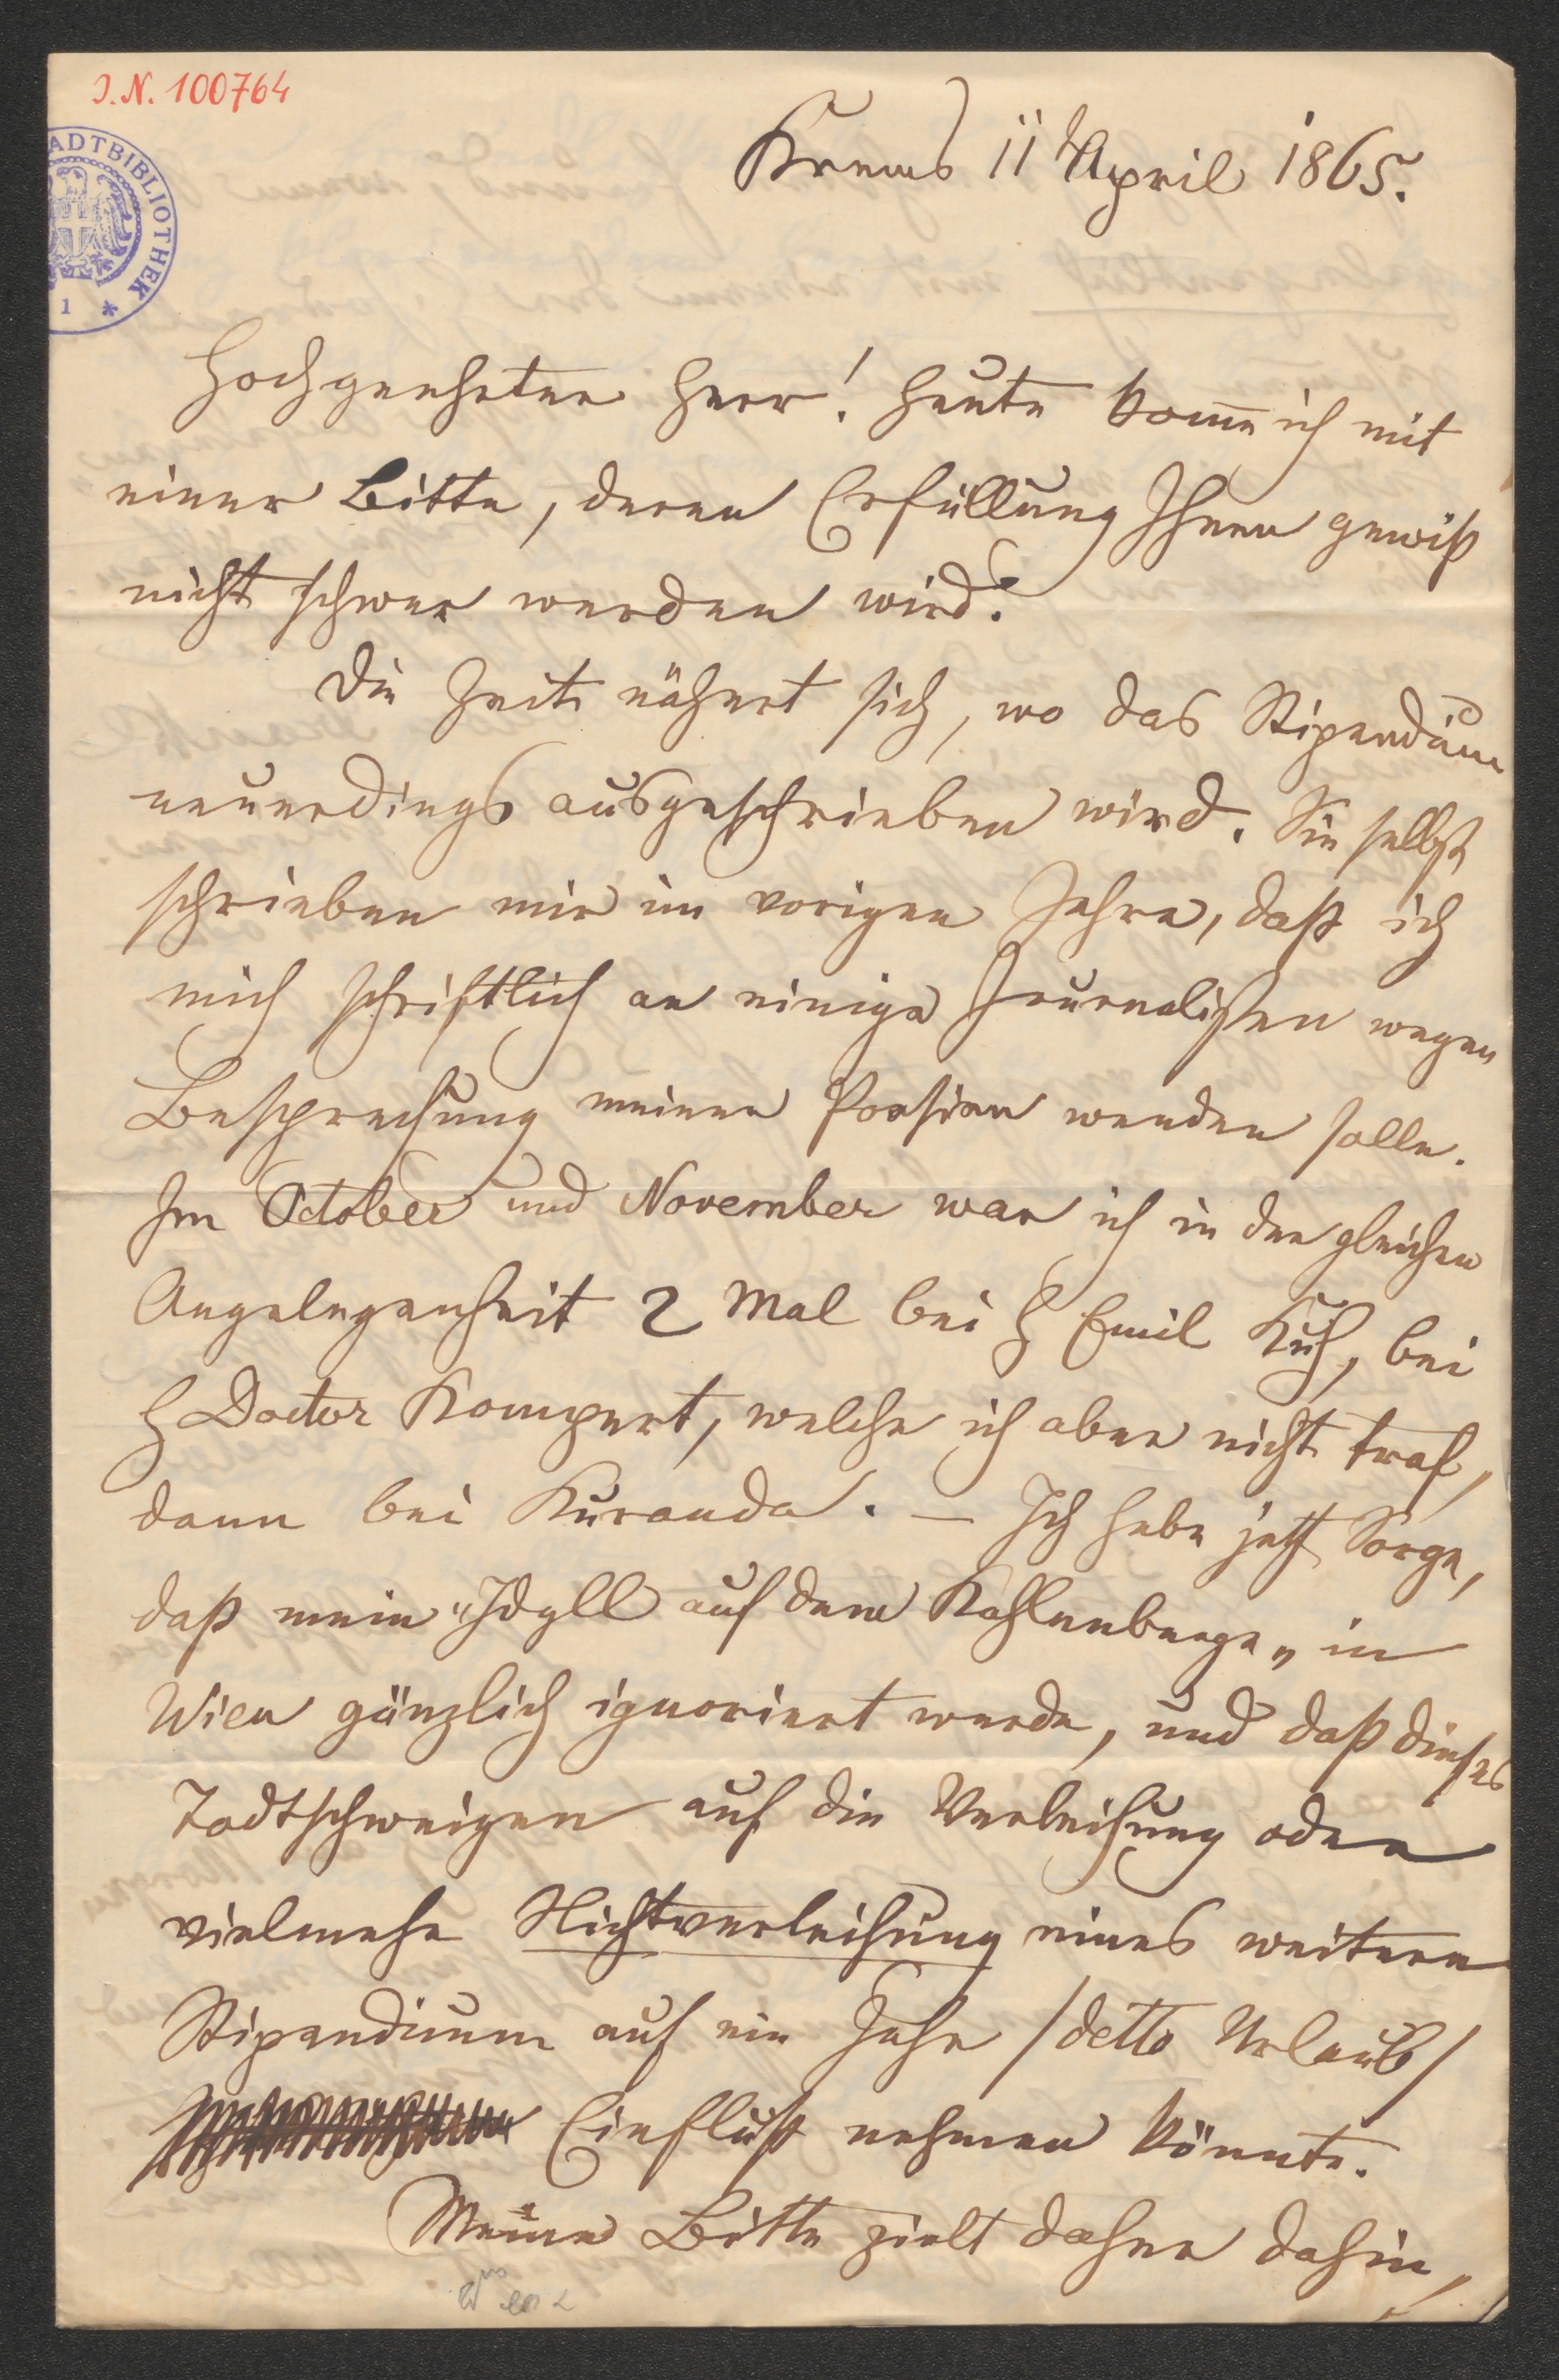 J.N. 100764
STADTBIBLIOTHEK
1 *
Krems 11t April 1865.
Hochgeehrter Herr! Heute kom̄e ich mit
einer Bitte, deren Erfüllung Ihnen gewiß
nicht schwer werden wird.
Die Zeit nähert sich, wo das Stipendium
neuerdings ausgeschrieben wird. Sie selbst
schrieben mir im vorigen Jahre, daß ich
mich schriftlich an einige Journalisten wegen
Besprechung meiner Poesien wenden solle.
Im October und November war ich in der gleichen
Angelegenheit 2 Mal bei H Emil Kuh, bei
H Doctor Kompert, welche ich aber nicht traf,
dann bei Kuranda. – Ich habe jetzt Sorge,
daß mein „Idyll auf dem Kahlenberge„ in
Wien gänzlich ignoriert werde, und daß dieses
Todtschweigen auf die Verleihung oder
vielmehr Nichtverleihung eines weitern
Stipendium auf ein Jahr /detto Urlaub/
Einfluß nehmen könnte.
Meine Bitte zielt daher dahin,